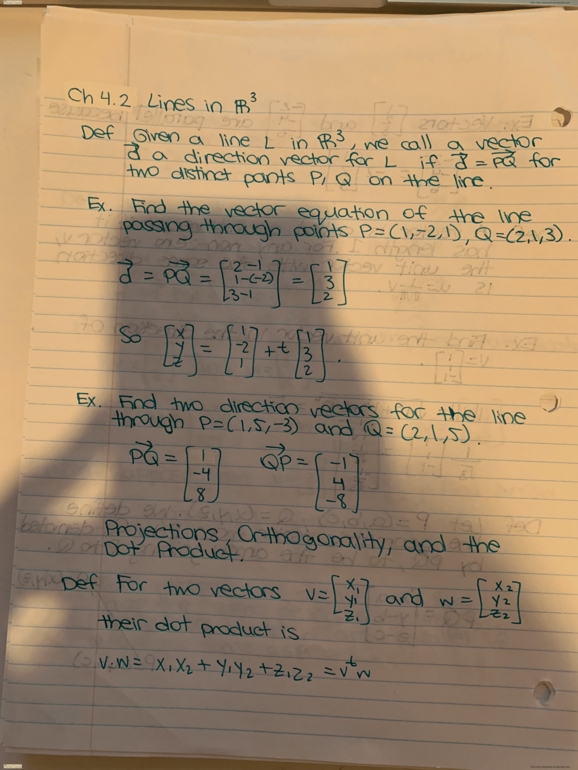 Ch 4.2 Lines in ℝ³
Def Given a line L in ℝ³, we call a vector
d⃗ a direction vector for L if d⃗ = PQ⃗ for
two distinct pants P, Q on the line.
Ex. Find the vector equation of the line
passing through points P=(1,-2,1), Q=(2,1,3).
d⃗ = PQ⃗ = [2-1 1-(-2) 3-1] = [1 3 2]
So [x y z] = [1 -2 1] + t [1 3 2].
Ex. Find two direction vectors for the line
through P=(1,5,-3) and Q=(2,1,5).
PQ⃗ = [1 -4 8] QP⃗ = [-1 4 -8]
Projections, Orthogonality, and the
Dot Product.
Def For two vectors v=[x₁ y₁ z₁] and w=[x₂ y₂ z₂]
their dot product is
v·w = x₁x₂ + y₁y₂ + z₁z₂ = vᵗw